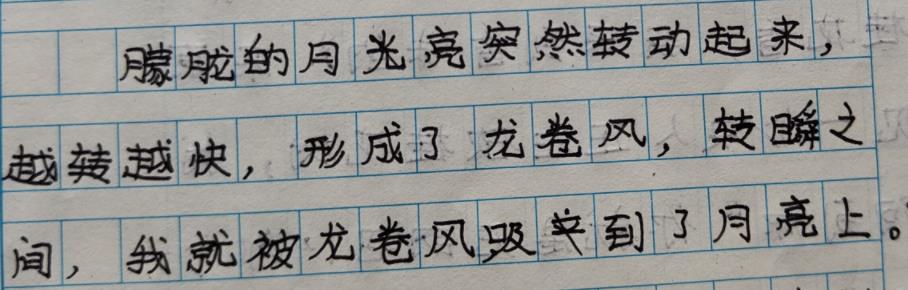 朦胧的月光亮突然转动起来，
越转越快，形成了龙卷风，转瞬之
间，我就被龙卷风吸夹到了月亮上。